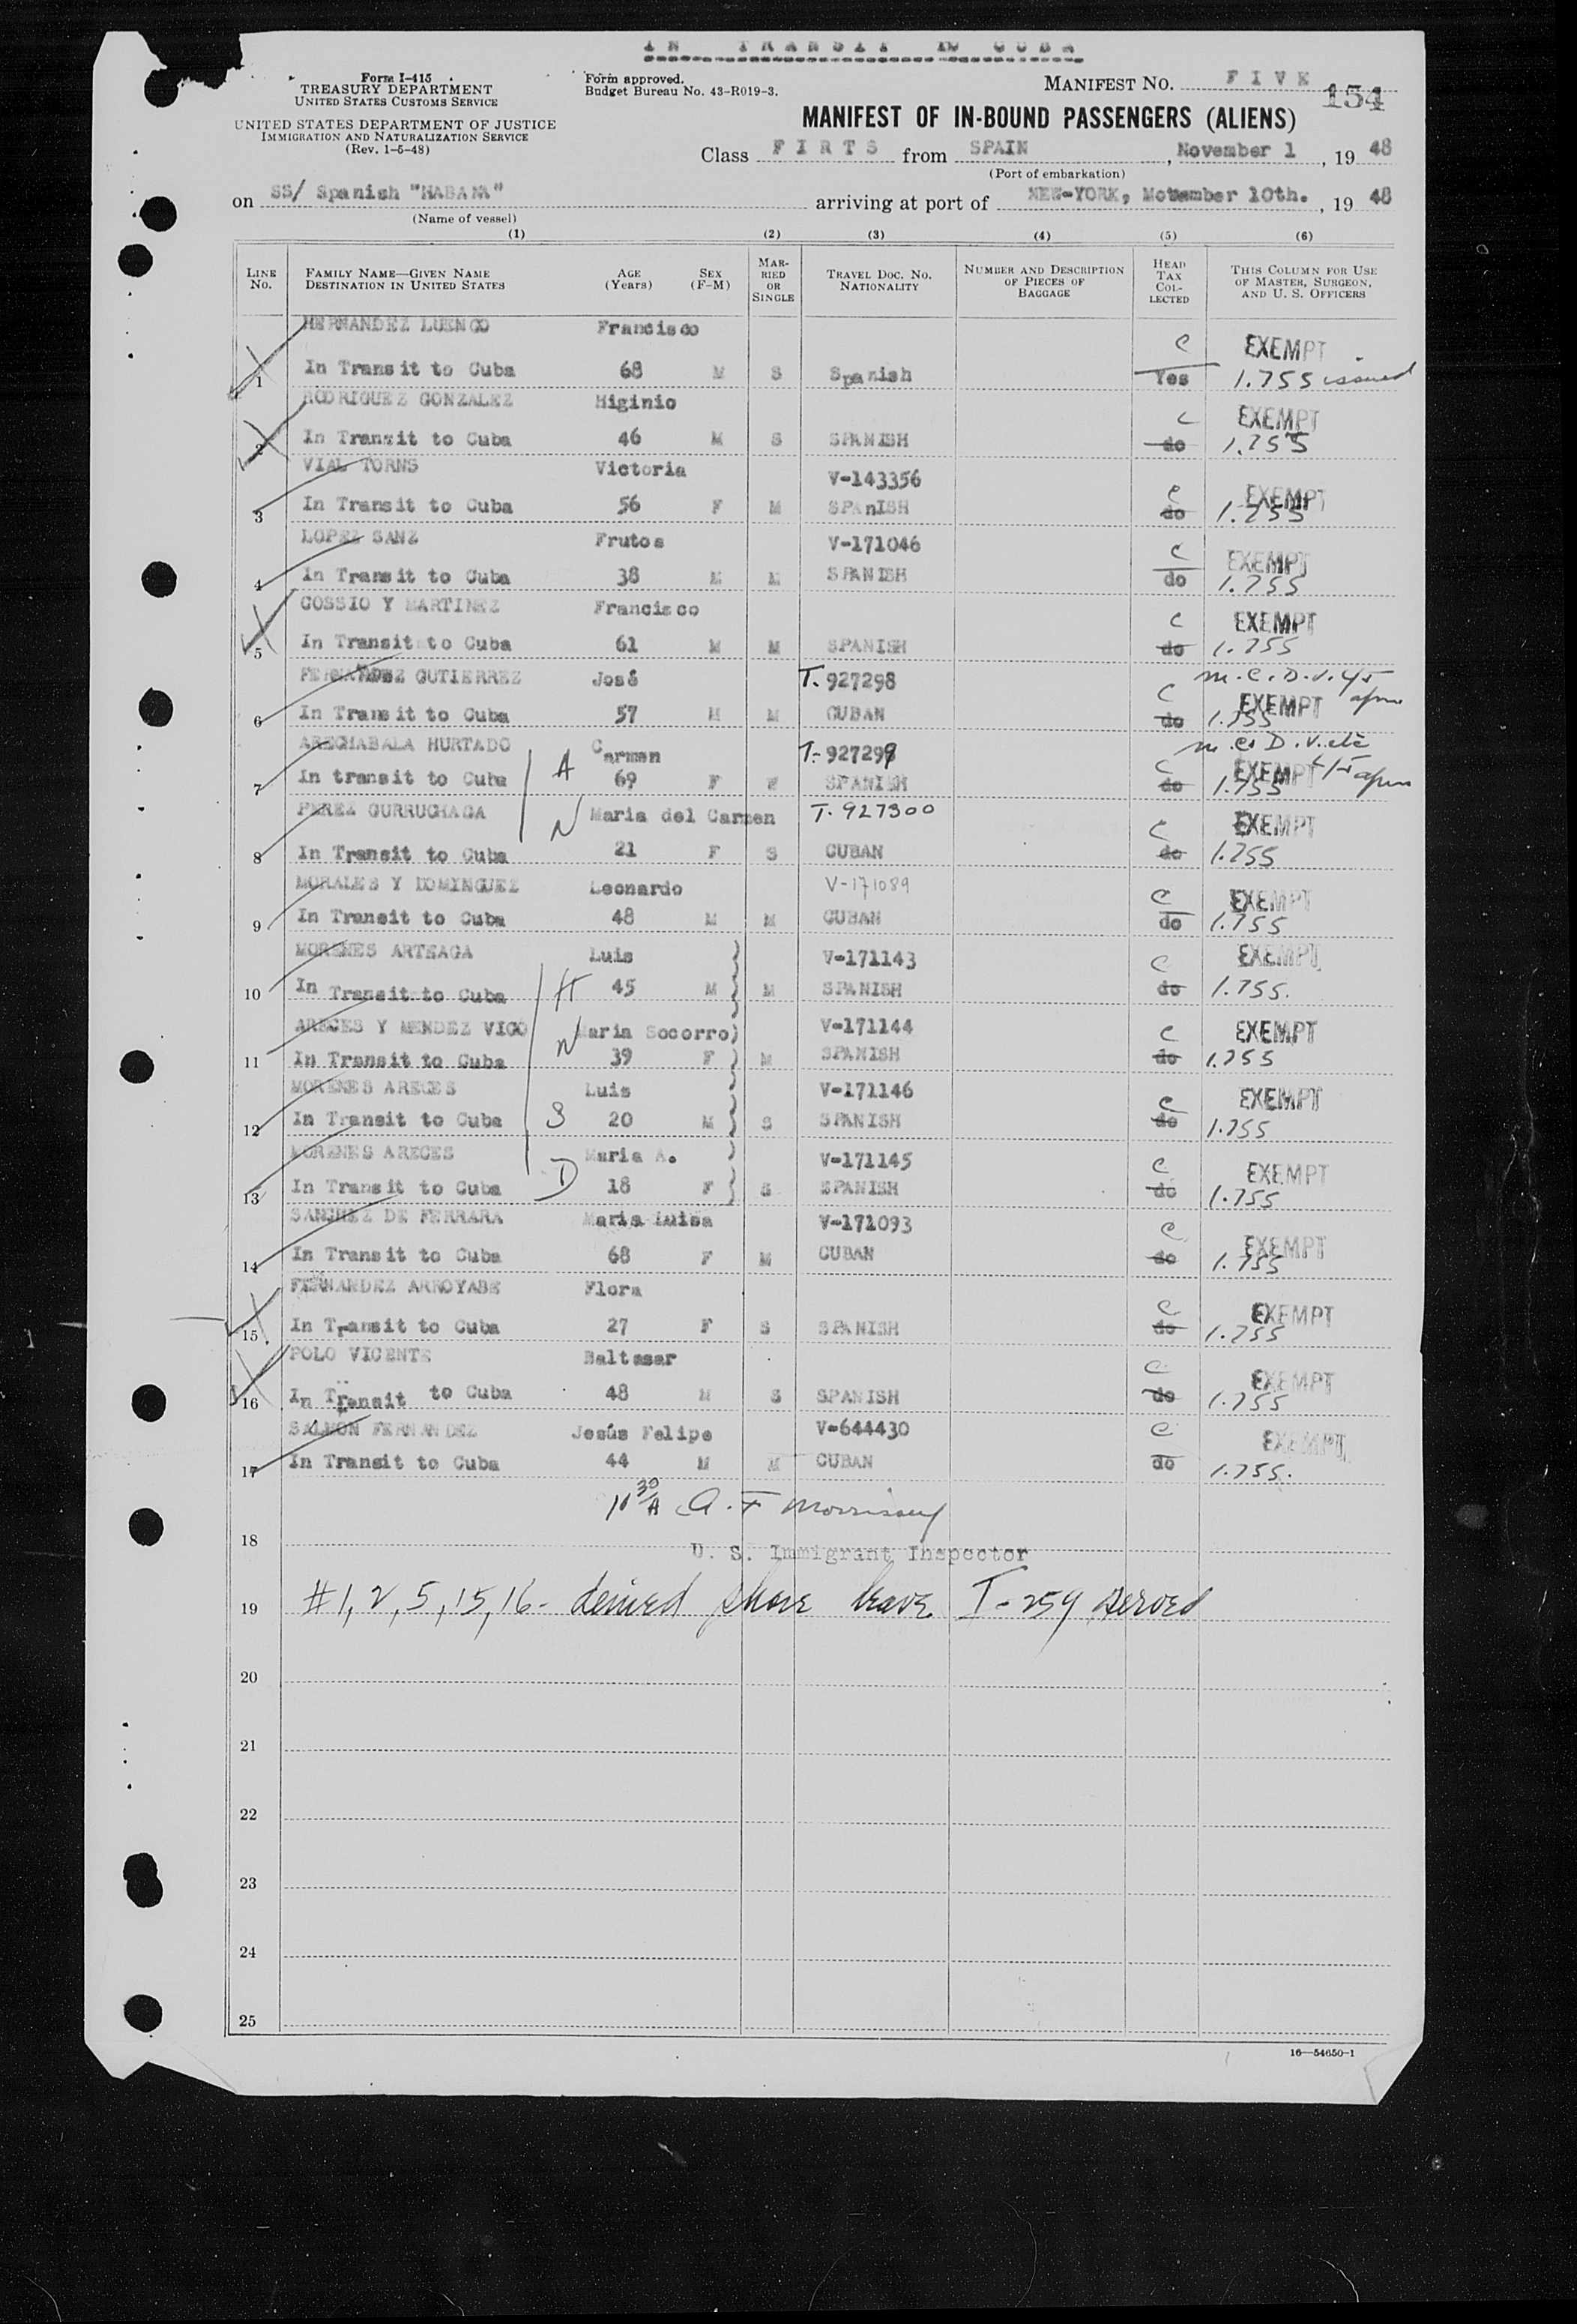 IN TRANSIT TO CUBA
Form I-415
TREASURY DEPARTMENT
UNITED STATES CUSTOMS SERVICE
UNITED STATES DEPARTMENT OF JUSTICE
IMMIGRATION AND NATURALIZATION SERVICE
(Rev. 1-5-48)
Form approved.
Budget Bureau No. 43-R019-3.
MANIFEST NO. FIVE 154
MANIFEST OF IN-BOUND PASSENGERS (ALIENS)
Class FIRTS from SPAIN, November 1, 19 48
(Port of embarkation)
on SS/ Spanish "HABANA" arriving at port of NEW-YORK, November 10th., 19 48
(Name of vessel)
(1) (2) (3) (4) (5) (6)
LINE No. FAMILY NAME—GIVEN NAME DESTINATION IN UNITED STATES AGE (Years) SEX (F-M) MARRIED OR SINGLE TRAVEL DOC. NO. NATIONALITY NUMBER AND DESCRIPTION OF PIECES OF BAGGAGE HEAD TAX COLLECTED THIS COLUMN FOR USE OF MASTER, SURGEON, AND U. S. OFFICERS
HERNANDEZ LUENGO Francisco C EXEMPT
1 In Transit to Cuba 68 M S Spanish Yes 1.755 issued
RODRIGUEZ GONZALEZ Higinio C EXEMPT
2 In Transit to Cuba 46 M S SPANISH do 1.755
VIAL TORNS Victoria V-143356 C EXEMPT
3 In Transit to Cuba 56 F M SPAnISH do 1.755
LOPEZ SANZ Frutos V-171046 C EXEMPT
4 In Transit to Cuba 38 M M SPANISH do 1.755
COSSIO Y MARTINEZ Francisco C EXEMPT
5 In Transit to Cuba 61 M M SPANISH do 1.755
FERNANDEZ GUTIERREZ José T. 927298 C EXEMPT
6 In Transit to Cuba 57 M M CUBAN do 1.755
ARECHABALA HURTADO Carmen T-927299 C EXEMPT
7 In transit to Cuba A 69 F SPANISH do 1.755
PEREZ GURRUCHAGA N Maria del Carmen T. 927300 C EXEMPT
8 In Transit to Cuba 21 F S CUBAN do 1.755
MORALES Y DOMINGUEZ Leonardo V-171089 C EXEMPT
9 In Transit to Cuba 48 M M CUBAN do 1.755
MORENES ARTEAGA Luis V-171143 C EXEMPT
10 In Transit to Cuba H 45 M M SPANISH do 1.755.
ARECES Y MENDEZ VIGO Maria Socorro) V-171144 C EXEMPT
11 In Transit to Cuba 39 F M SPANISH do 1.755
MORENES ARECES Luis V-171146 C EXEMPT
12 In Transit to Cuba S 20 M S SPANISH do 1.755
MORENES ARECES Maria A. V-171145 C EXEMPT
13 In Transit to Cuba D 18 F S SPANISH do 1.755
SANCHEZ DE FERRARA Maria Luisa V-171093 C EXEMPT
14 In Transit to Cuba 68 F M CUBAN do 1.755
FERNANDEZ ARROYABE Flora C EXEMPT
15 In Transit to Cuba 27 F S SPANISH do 1.755
POLO VICENTE Baltasar C EXEMPT
16 In Transit to Cuba 48 M S SPANISH do 1.755
SALMON FERNANDEZ Jesús Felipe V-644430 C EXEMPT
17 In Transit to Cuba 44 M M CUBAN do 1.755.
10 30 A A. F Morrissey
18 U. S. Immigrant Inspector
19 #1, 2, 5, 15, 16- denied shore leave I-259 served
20
21
22
23
24
25
16—54650-1